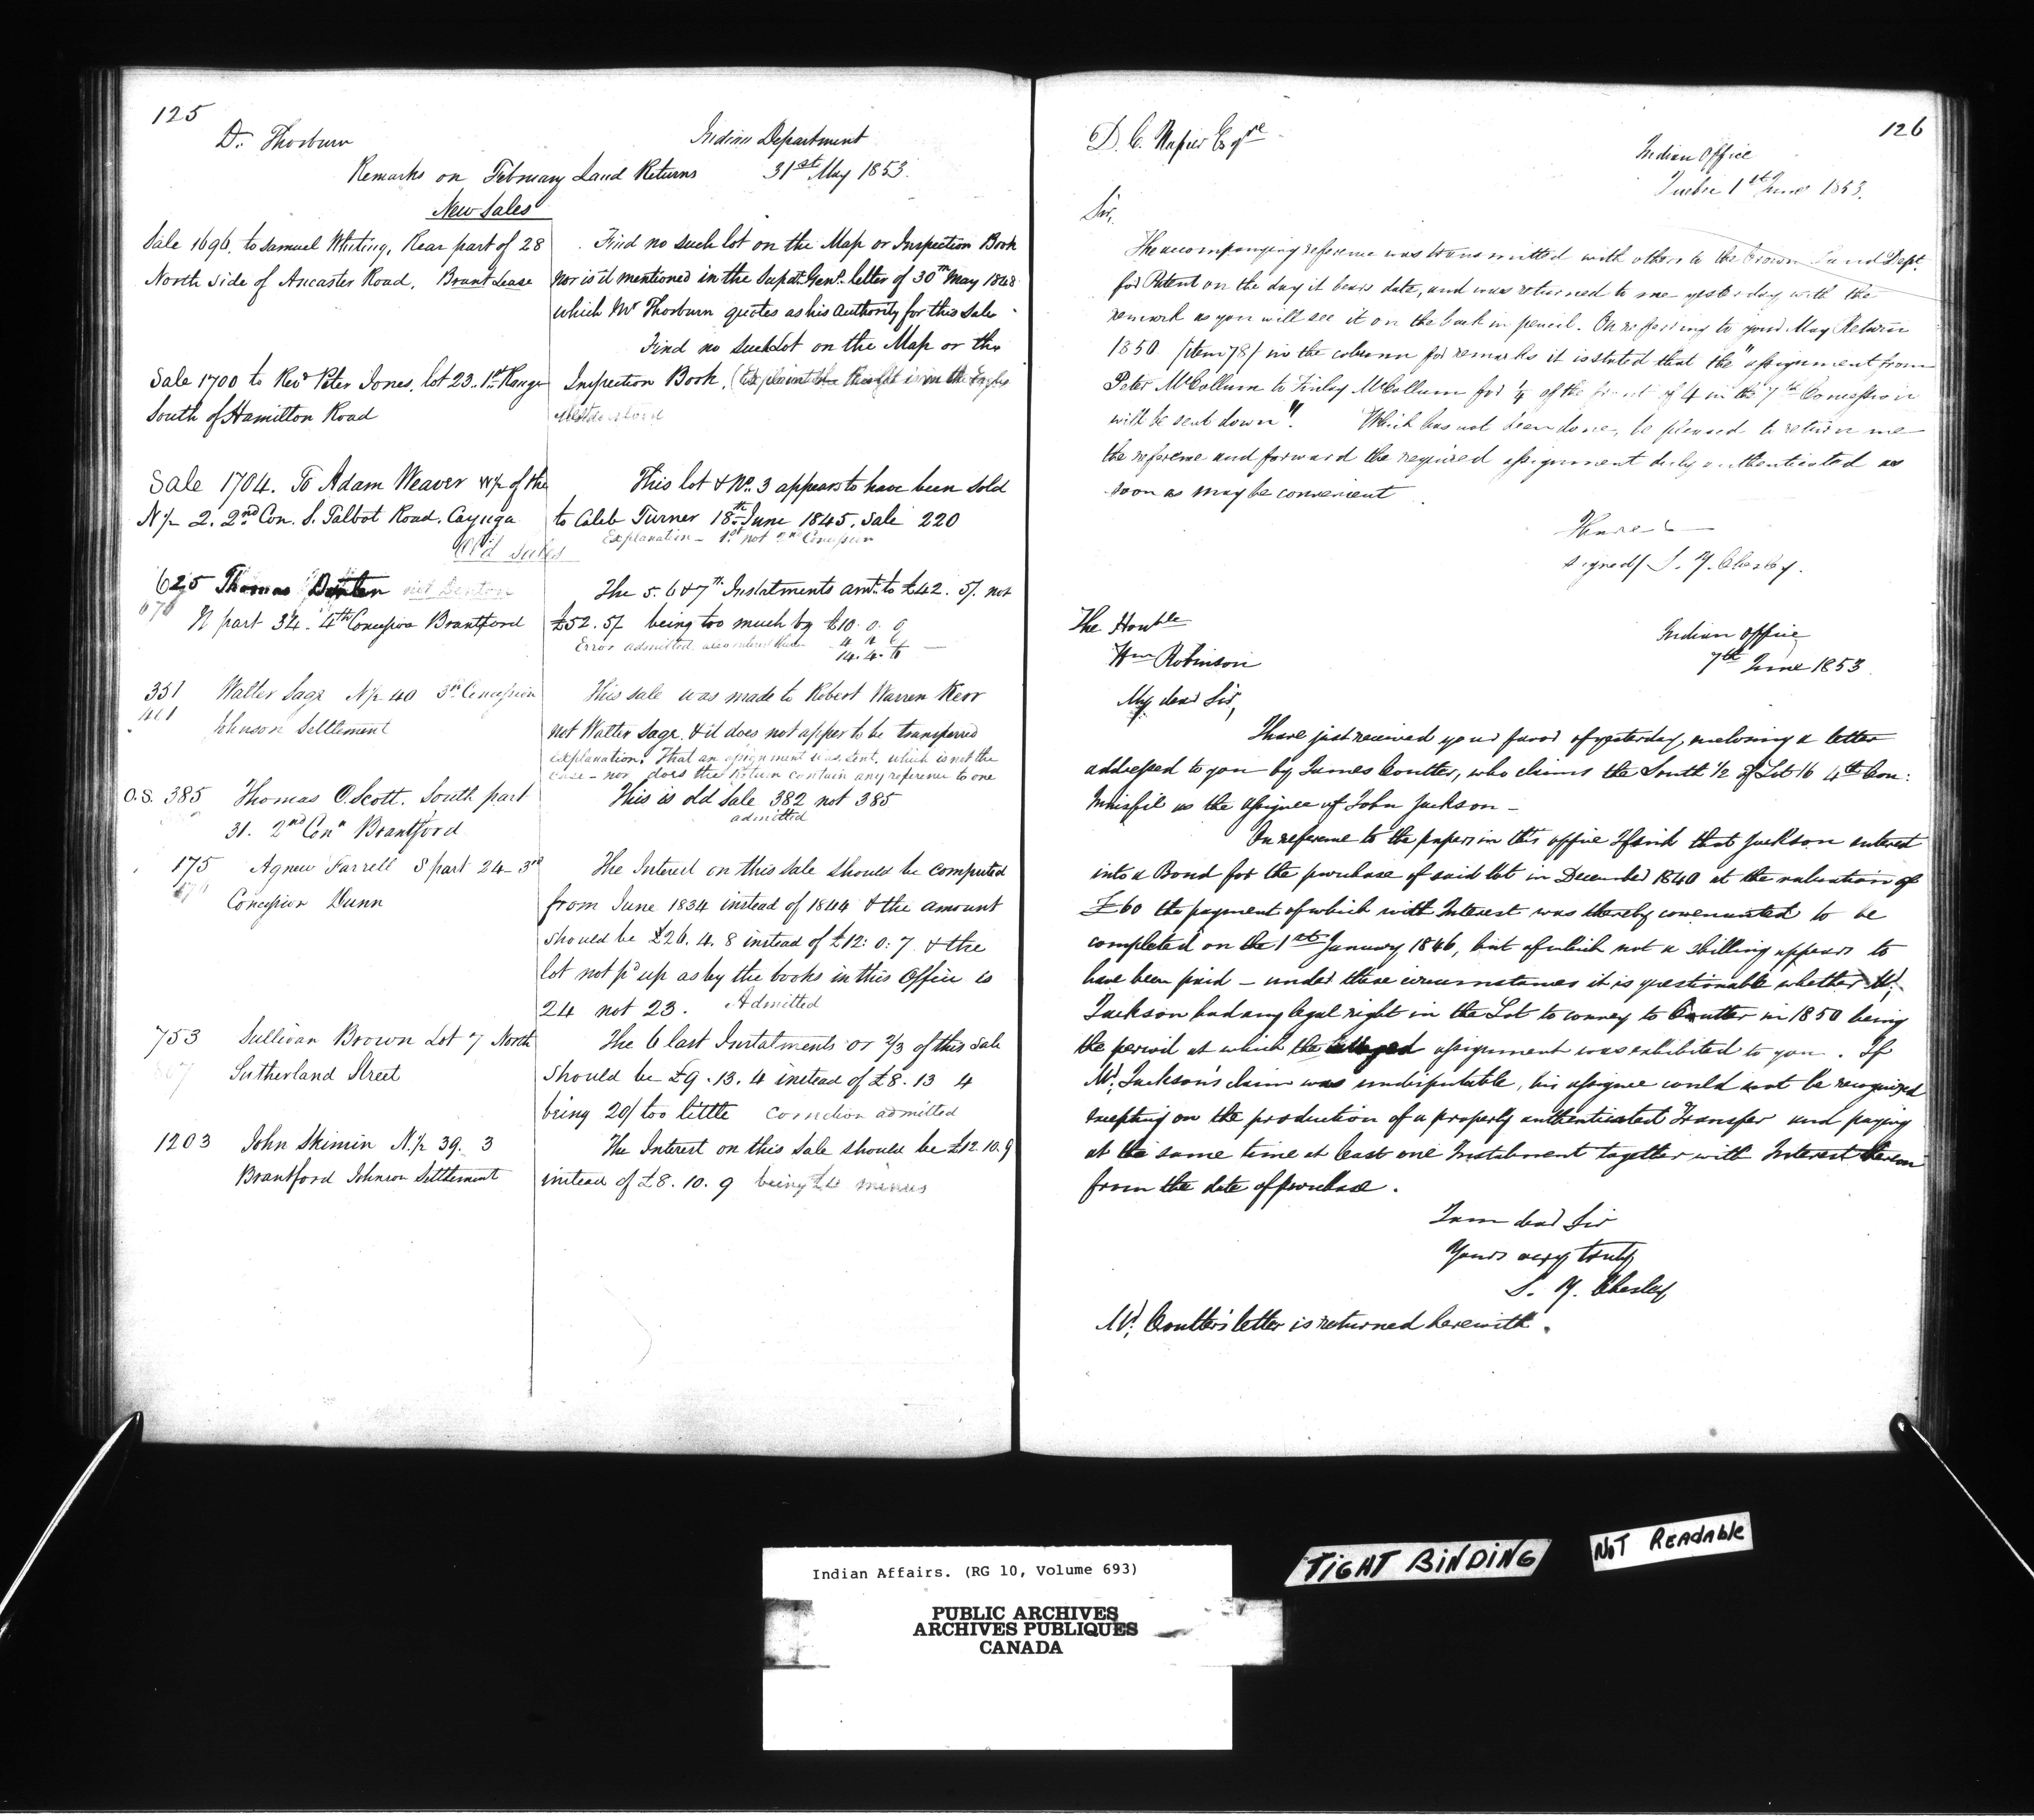 125
D. Thorburn
Indian Department
Remarks on February Land Returns 31st May 1853.
New Sales
Sale 1696. to Samuel Whiting, Rear part of 28
North side of Ancaster Road, Brant Lease
Find no such lot on the Map or Inspection Book
nor is it mentioned in the Supdt. Genl. letter of 30th May 1848
which Mr Thorburn quotes as his Authority for this Sale
Sale 1700 to Revd Peter Jones, lot 23. 1st Range
South of Hamilton Road
Find no such Lot on the Map or the
Inspection Book.
Sale 1704. To Adam Weaver W/2 of the
N/2 2. 2nd Con. S. Talbot Road. Cayuga
This lot & No. 3 appears to have been sold
to Caleb Turner 18th June 1845. Sale 220
Explanation - 1st not 2nd Concession
Old Sales
625 Thomas Denton not Denton
670 N part 34. 4th Concession Brantford
The 5. 6 & 7th Instalments amt. to £42. 5/. not
£52. 5/ being too much by £10. 0. 0
Error admitted
14. 4. 6
351 Walter Sage N/2 40 3rd Concession
401 Johnson Settlement
This sale was made to Robert Warren Kerr
not Walter Sage. & it does not apper to be transferred
Explanation. That an assignment was sent, which is not the
case - nor does the Return contain any reference to one
O.S. 385 Thomas C. Scott. South part
31. 2nd Conn Brantford
This is old Sale 382 not 385
admitted
175 Agnew Farrell S part 24 - 3rd
Concession Dunn
The Interest on this Sale should be computed
from June 1834 instead of 1844 & the amount
should be £26. 4. 8 instead of £12: 0: 7 & the
lot not pd up as by the books in this Office is
24 not 23. Admitted
753 Sullivan Brown Lot 7 North
Sutherland Street
The 6 last Instalments or 2/3 of this Sale
should be £9. 13. 4 instead of £8. 13 4
being 20/ too little Correction admitted
1203 John Skimin N/2 39. 3
Brantford Johnson Settlement
The Interest on this Sale should be £12. 10. 9
instead of £8. 10. 9 being £4 minus
126
D. C. Napier Esqre
Indian Office
Quebec 1st June 1853.
Sir,
The accompanying reference was transmitted with others to the Crown Land Dept.
for Patent on the day it bears date, and was returned to me yesterday with the
remark as you will see it on the back in pencil. On referring to your May Return
1850 (item 78) in the column for remarks it is stated that the "assignment from
Peter McCollum to Finlay McCollum for 1/4 of the front of 4 in the 7th Concession
will be sent down". Which has not been done, be pleased to return me
the reference and forward the required assignment duly authenticated as
soon as may be convenient
I have &c
signed/ S. Y. Chesley.
The Honble
Wm Robinson
Indian Office
7th June 1853
My dear Sir,
I have just received your favor of yesterday, inclosing a letter
addressed to you by James Coulter, who claims the South 1/2 of Lot 16 4th Con:
Innisfil as the assignee of John Jackson -
On reference to the papers in this office I find that Jackson entered
into a Bond for the purchase of said lot in December 1840 at the valuation of
£60 the payment of which with Interest was thereby covenanted to be
completed on the 1st January 1846, but of which not a shilling appears to
have been paid - under these circumstances it is questionable whether Mr.
Jackson had any legal right in the Lot to convey to Coulter in 1850 being
the period at which the alleged assignment was exhibited to you. If
Mr. Jackson's claim was undisputable, his assignee could not be recognized
excepting on the production of a properly authenticated Transfer and paying
at the same time at least one Instalment together with Interest thereon
from the date of purchase.
I am dear Sir
Yours very truly
S. Y. Chesley
Mr. Coulter's letter is returned herewith.
Indian Affairs. (RG 10, Volume 693)
PUBLIC ARCHIVES
ARCHIVES PUBLIQUES
CANADA
TIGHT BINDING
NOT READABLE